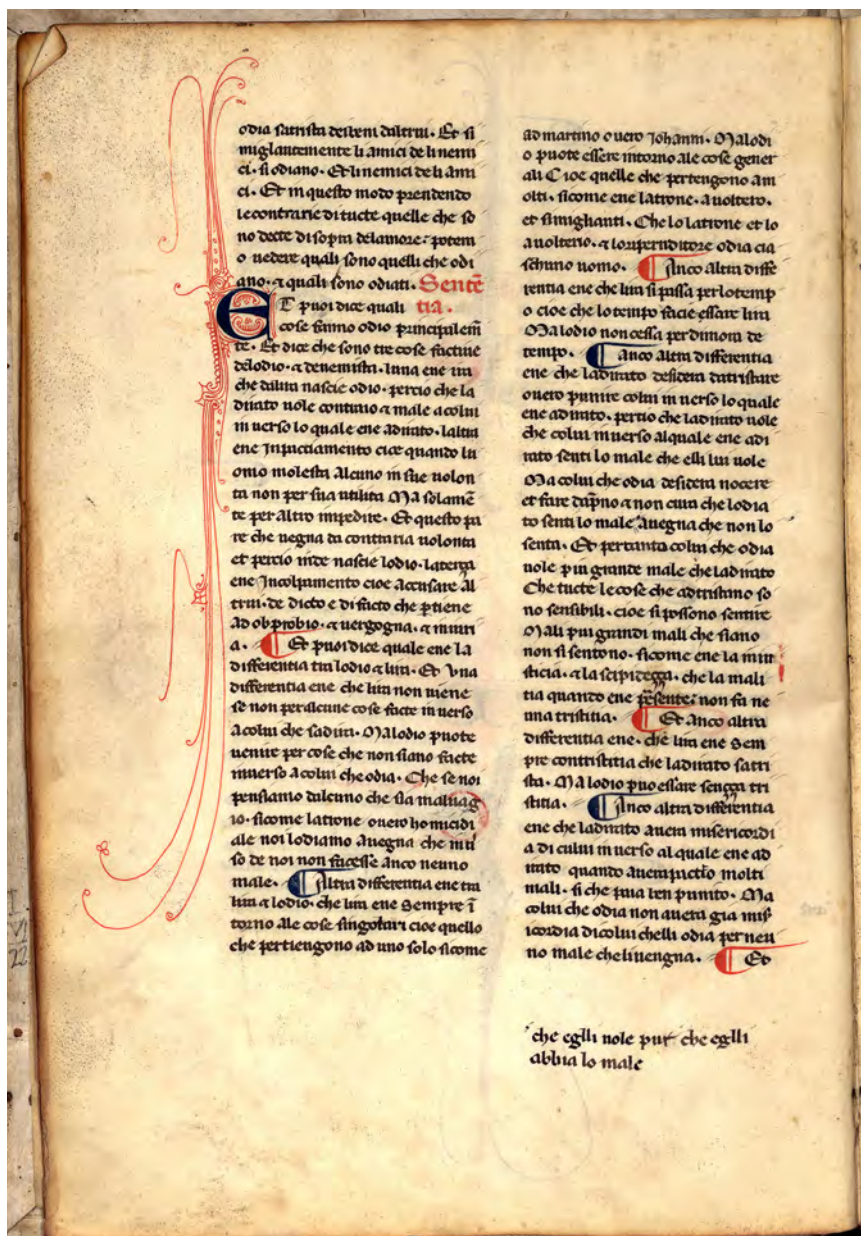 odia satrista delbem daltrui. Et si
miglantemente li amici de li nemi
ci. si odiano. Et li nemici de li ami
ci. Et in questo modo prendendo
le contrarie di tucte quelle che so
no decte di sopra delamore: potem
o uedere quali sono quelli che odi
ano. ⁊ quali sono odiati. Sentē
ET puoi dice quali tia.
cose fanno odio principalem̄
te. Et dice che sono tre cose factiue
delodio. ⁊ denemista. luna ene ira
che dalira nascie odio. percio che la
dirato uole contraio ⁊ male a colui
in uerso lo quale ene adirato. laltra
ene Inpactiamento cioe quando lu
omo molesta alcuno in sue uolon
ta non per sua utilita Ma solamē
te per altro impedire. Et questo pa
re che uegna da contraria uolonta
et percio inde nascie lodio. laterça
ene Incolpamento cioe accusare al
trui. de dicto e di facto che ꝑtiene
ad obprobio. ⁊ uergogna. ⁊ iniuri
a. Et puoi dice quale ene la
differentia tra lodio ⁊ lira. Et Vna
differentia ene che lira non uiene
se non per alcune cose facte in uerso
a colui che sadira. Ma lodio puote
uenire per cose che non siano facte
inuerso a colui che odia. Che se noi
pensiamo dalcuno che sia maluag
io. sicome latrone ouero homicidi
ale noi lodiamo auegna che inu
so de noi non facesse anco neuno
male. Altra differentia ene tra
lira ⁊ lodio. che lira ene Sempre ī
torno ale cose singolari cioe quello
che pertiengono ad uno solo sicome
ad martino ouero Johanni. Ma lodi
o puote essere intorno ale cose gener
ali Cioe quelle che pertengono am
olti. sicome ene latrone. auoltero.
et simiglianti. Che lo latrone et lo
auolterio. ⁊ lo traditore odia cia
schuno uomo. Anco altra diffe
rentia ene che lira si passa per lo temp
o cioe che lo tempo facie essare lira
Ma lodio non cessa per dimora de
tempo. Anco altra differentia
ene che ladirato desidera datristare
ouero punire colui in uerso lo quale
ene adirato. pertio che ladirato uole
che colui in uerso alquale ene adi
rato senti lo male che elli lui uole
Ma colui che odia desidera nocere
et fare dapno ⁊ non cura che lodia
to senti lo male auegna che non lo
senta. Et pertanto colui che odia
uole piu grande male che ladirato
Che tucte le cose che adtristano so
no sensibili. cioe si possono sentire
Mali piu grandi mali che siano
non si sentono. sicome ene la iniu
sticia. ⁊ la scipideçça. che la mali
tia quando ene presente: non fa ne
una tristitia. Et Anco altra
differentia ene. che lira ene Sem
pre contristitia che ladirato satri
sta. Ma lodio puo essare sença tri
stitia. Anco altra differentia
ene che ladirato auera misericordi
a di cului in uerso al quale ene ad
irato quando auera pacto molti
mali. si che paia ben punito. Ma
colui che odia non auera gia mis
icordia di colui chelli odia per neu
no male che li uengna. Et
che eglli uole pur che eglli
abbia lo male